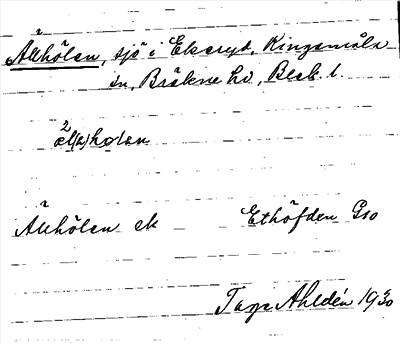 Ällhölen, sjö i Ekeryd, Ringamåla
sn, Bräkne hd, Blek. l.
²æl(ə)hølən
Ällhölen ek Ethöfden Gso
Tage Ahldén 1930